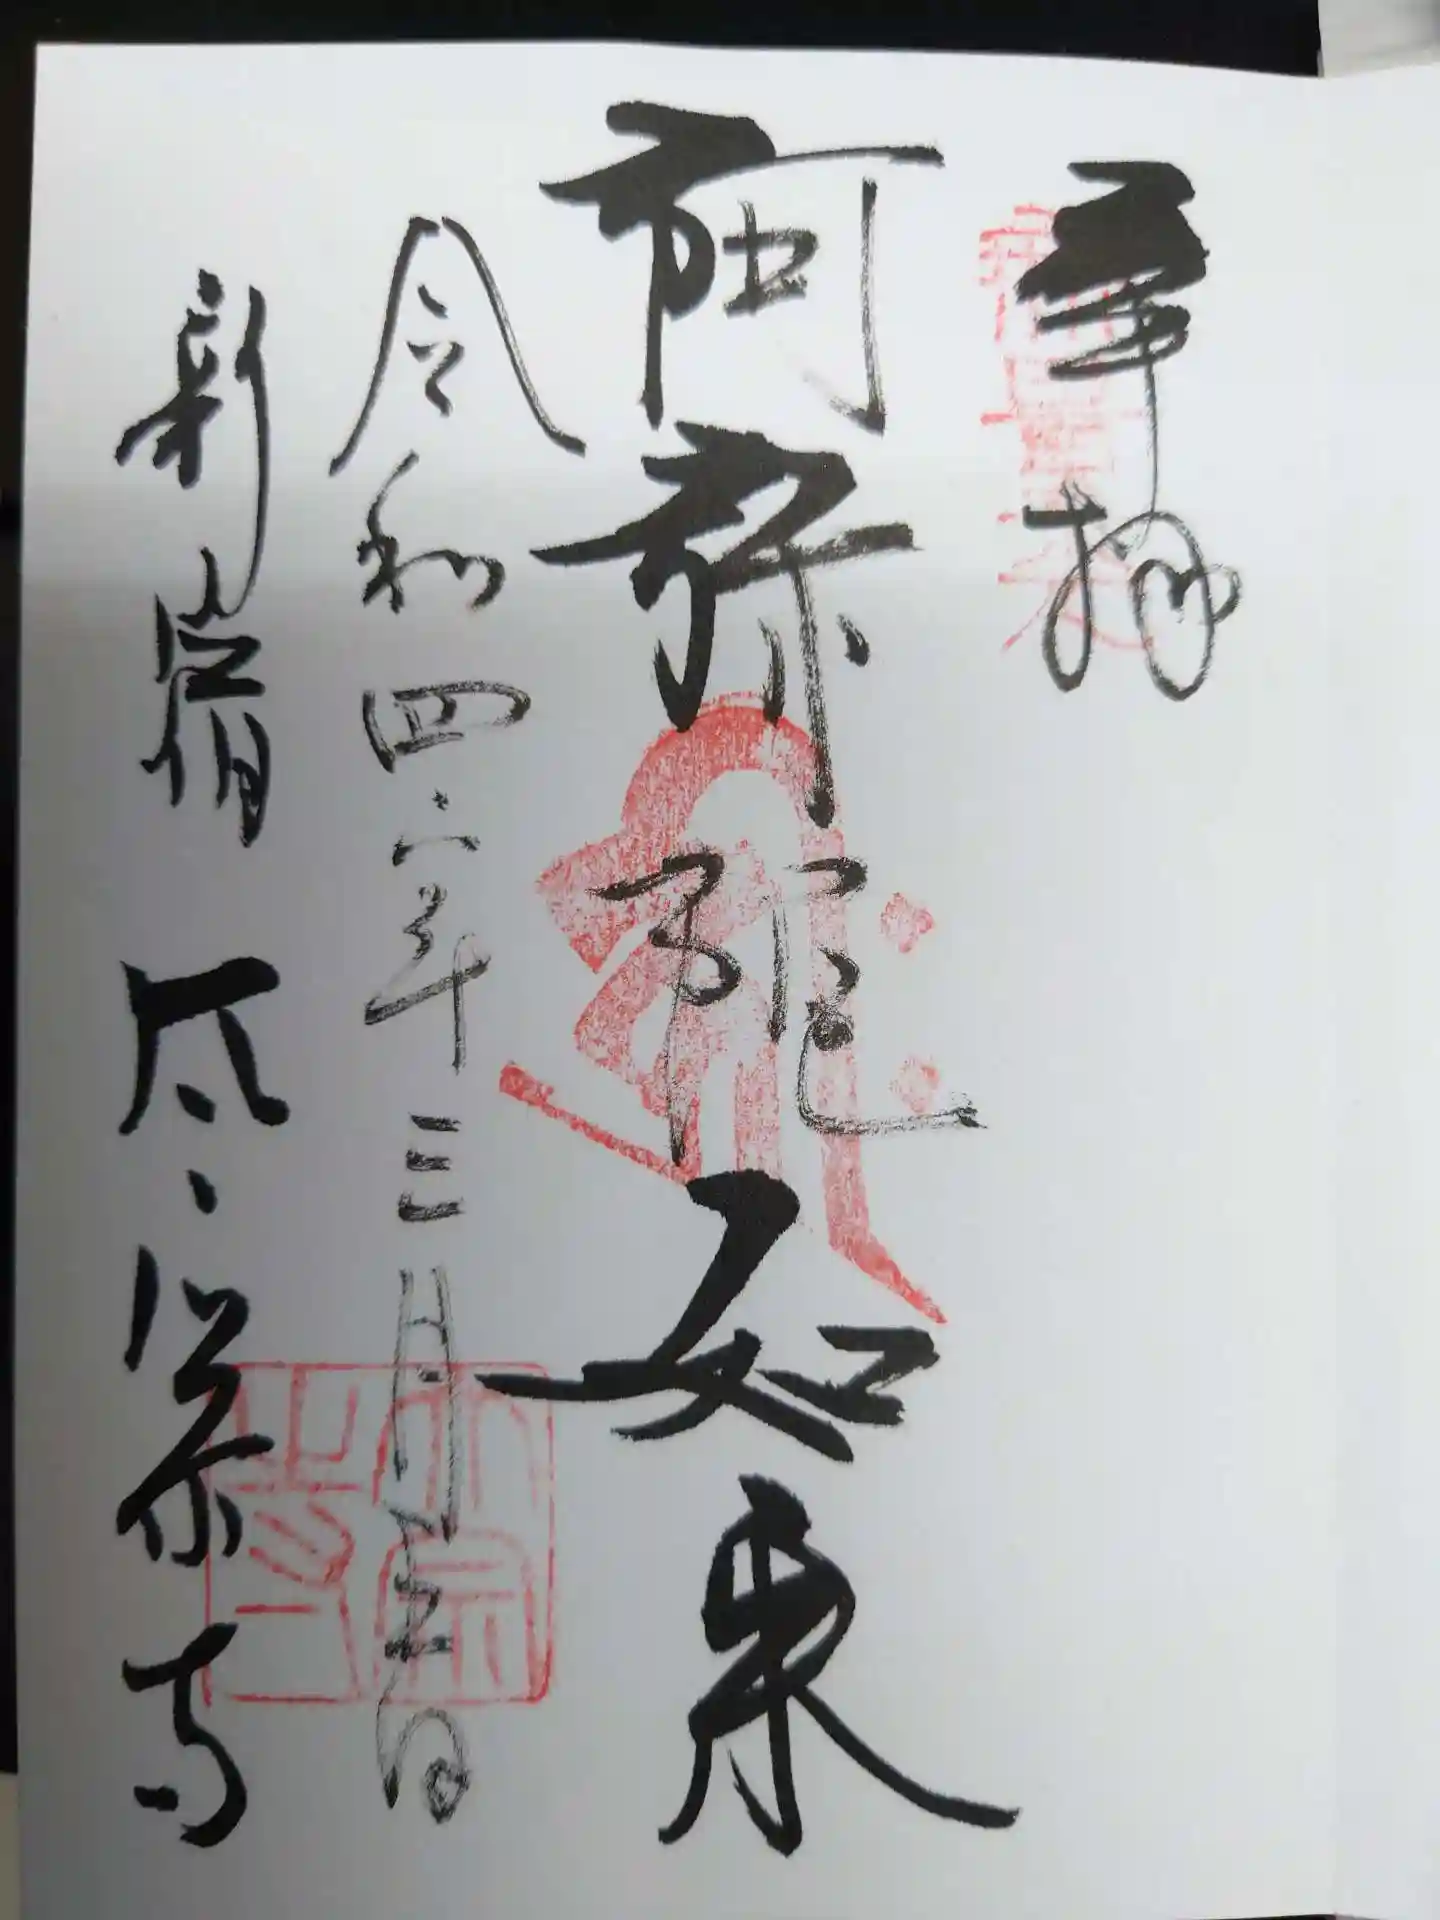 奉拝
阿弥陀如来
令和四年三月五日
新宿 太宗寺